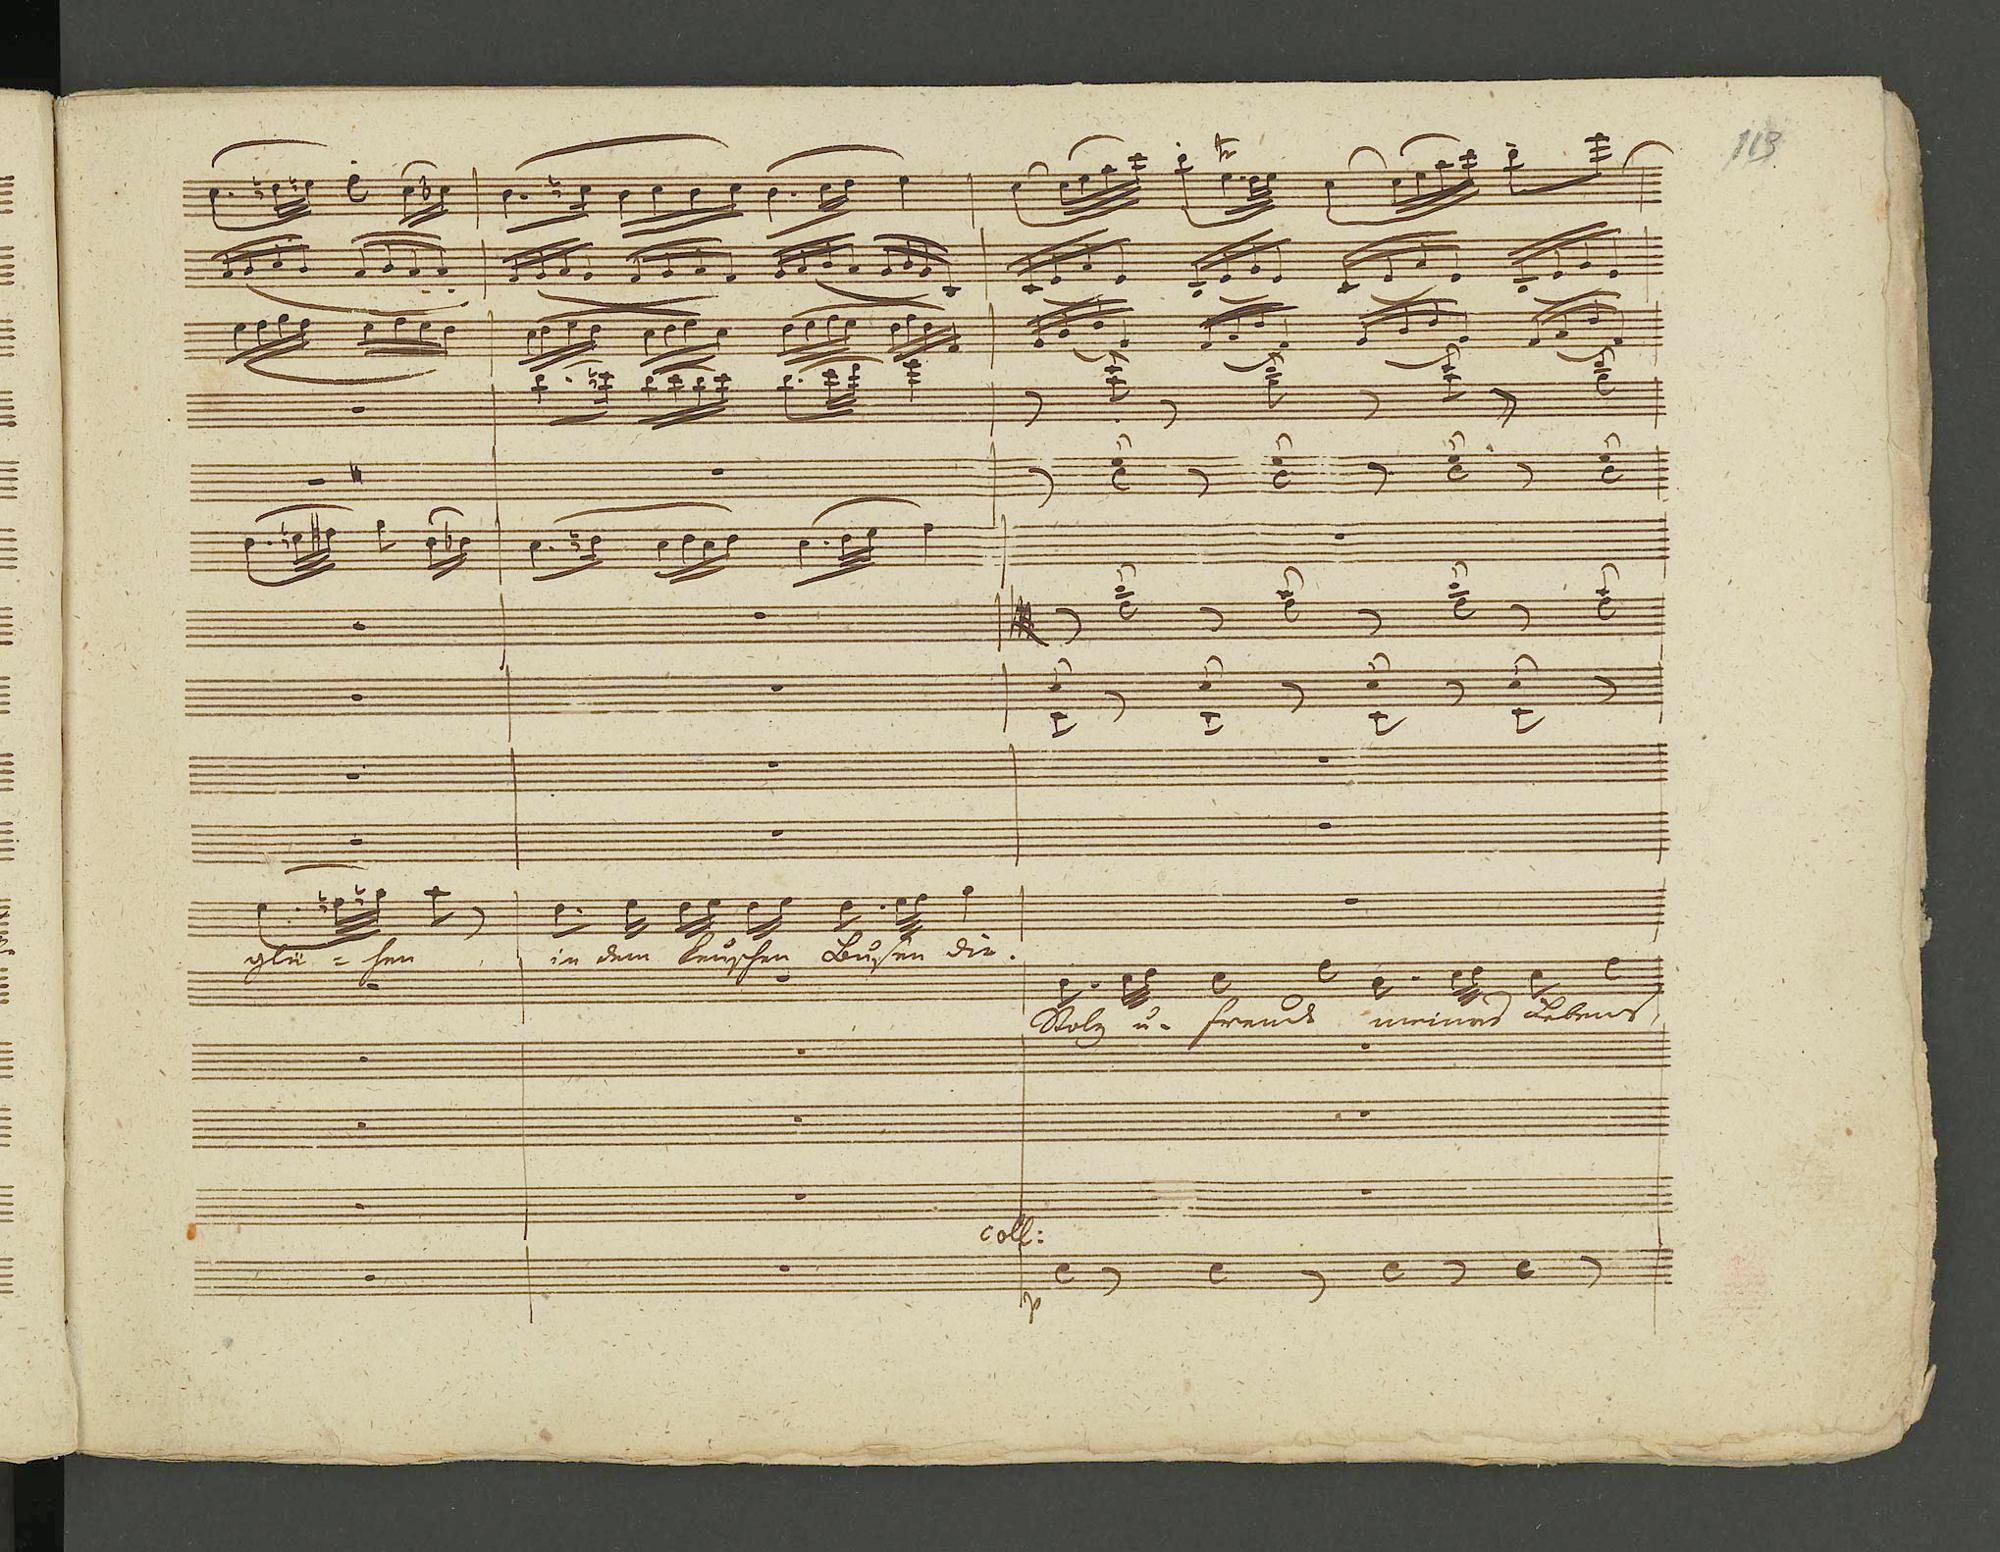 113
tr
glü = hen
in dem keuschen Busen die.
Stolz u. Freude meines Lebens,
coll:
p